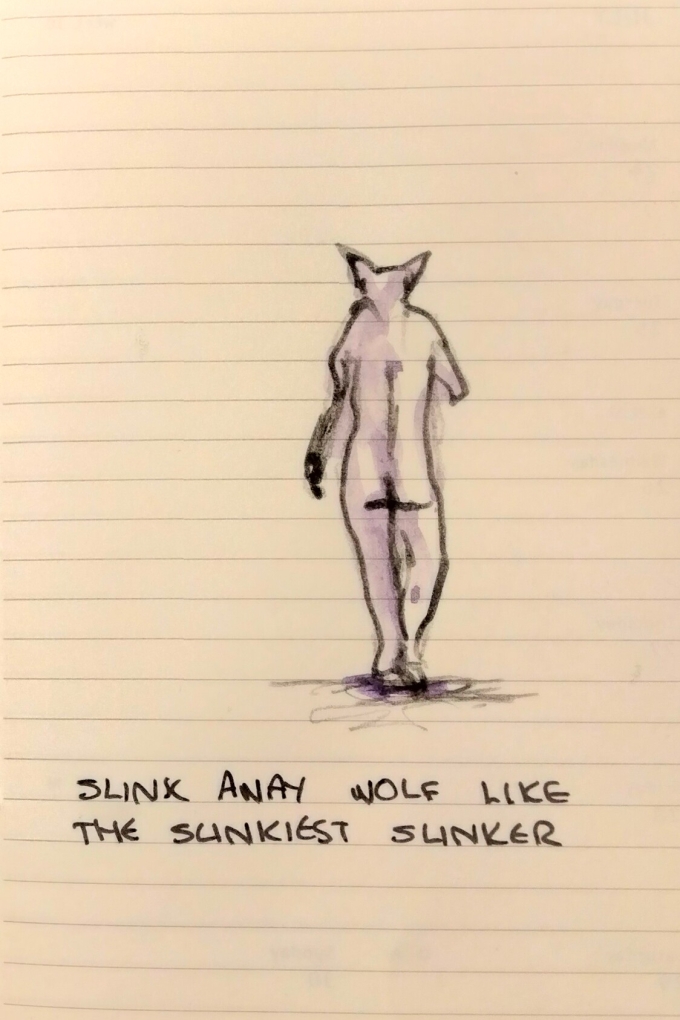 SLINK AWAY WOLF LIKE
THE SLINKIEST SLINKER